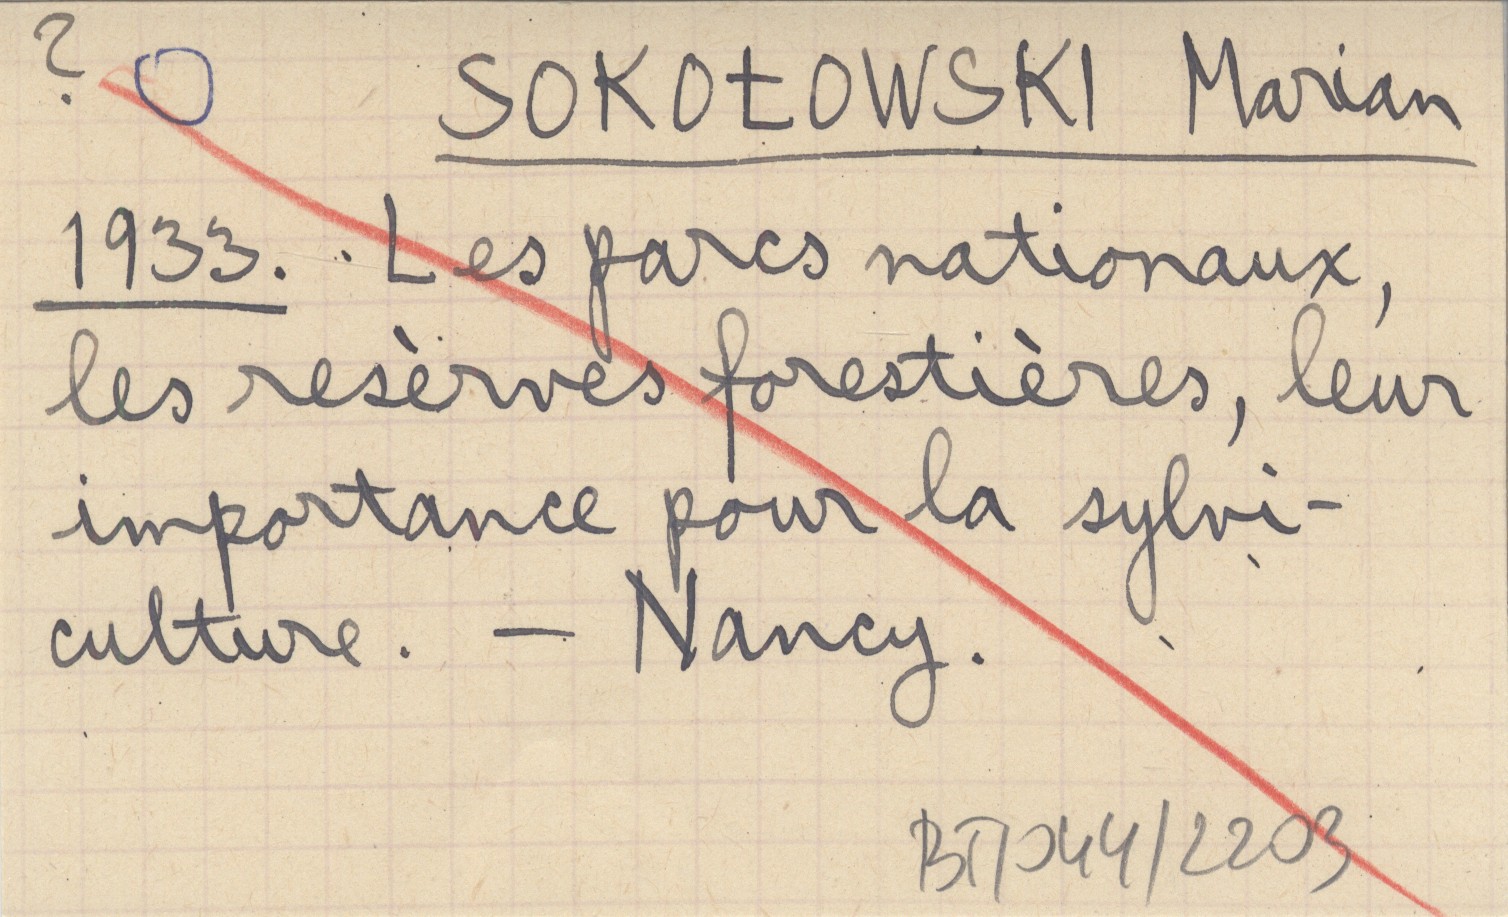 ? O SOKOŁOWSKI Marian
1933. Les parcs nationaux,
les resèrves forestières, leur
importance pour la sylvi-
culture. — Nancy.
BT/044/2203